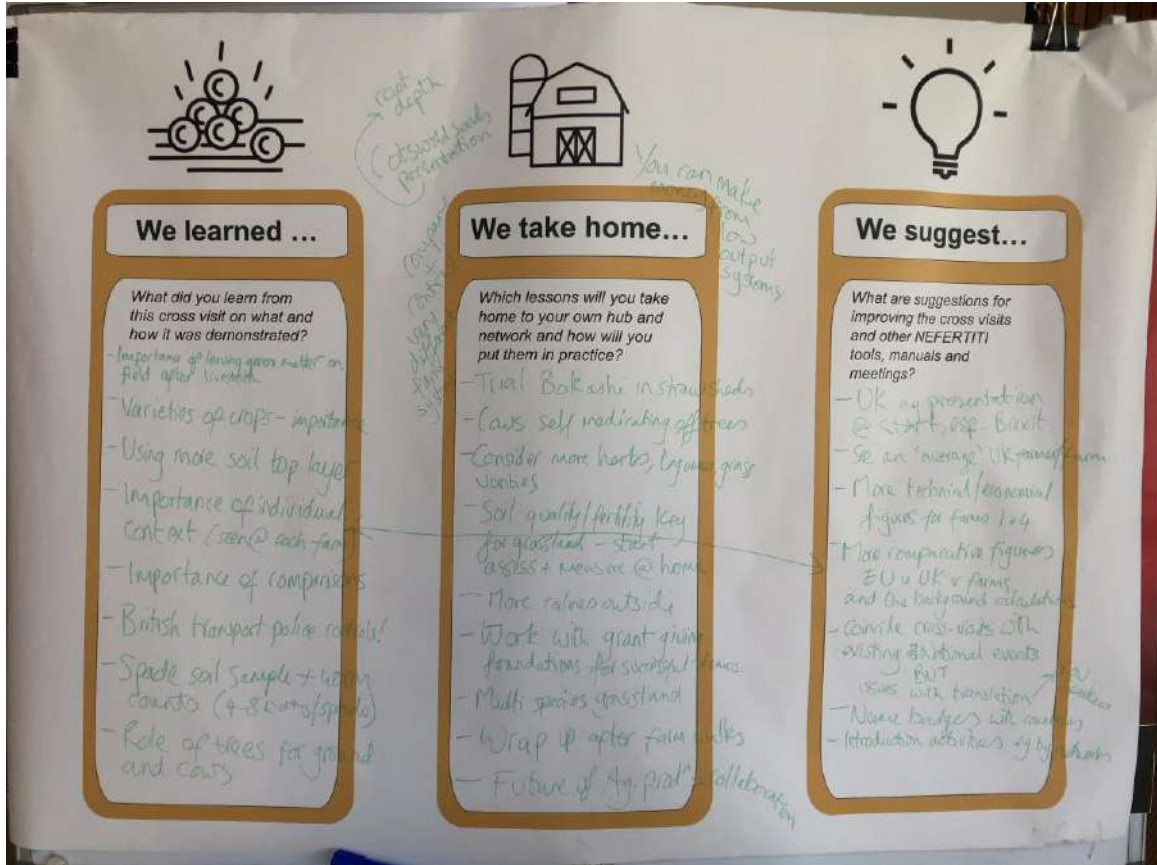 We learned ...
What did you learn from
this cross visit on what and
how it was demonstrated?
- Importance of leaving green matter on
field after livestock
- Varieties of crops - importance
- Using more soil top layer
- Importance of individual
context (seen @ each farm)
- Importance of comparisons
- British transport police controls!
- Spade soil sample + worm
counts (4-8 /spade)
- Role of trees for ground
and cows
root
depth
Cotswold Seeds
presentation
We take home...
You can make
money from
low
output
systems
Which lessons will you take
home to your own hub and
network and how will you
put them in practice?
- Trial Bokashi in straw sheds
- Cows self medicating off trees
- Consider more herbs, legumes, grass
- Soil quality/fertility key
for grassland - start
assess + measure @ home
- More calves outside
- Work with grant giving
foundations for successful
- Multi species grassland
- Wrap up after farm walks
- Future of Ag. prodⁿ = collaboration
We suggest...
What are suggestions for
improving the cross visits
and other NEFERTITI
tools, manuals and
meetings?
- UK ag presentation
@ start, esp. Brexit.
- See an 'average' UK farmer/farm
- More technical/economical
figures for farms 1+4
- More comparative figures
EU v UK v farms
and the background calculations
- Coincide cross-visits with
existing National events
BUT
issues with translation
- Name badges with countries
- Introduction activities eg by networks